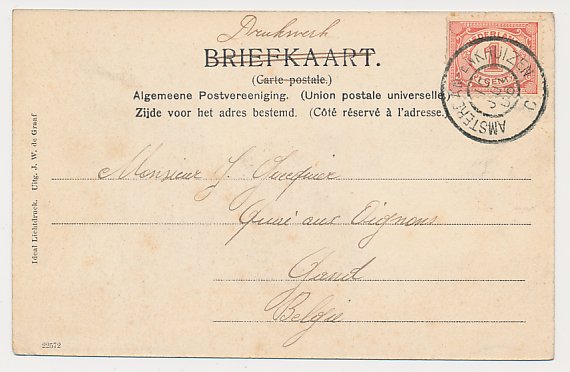 Drukwerk
BRIEFKAART.
(Carte postale.)
Algemeene Postvereeniging. (Union postale universelle.
Zijde voor het adres bestemd. (Côté réservé à l'adresse.)
NEDERLAND
1
CENT
AMSTERD-ENKHUIZEN C
Monsieur J.
Quai aux Oignons
Gand
Belgie
Ideal Lichtdruck. Uitg. J. W. de Graaf
22572